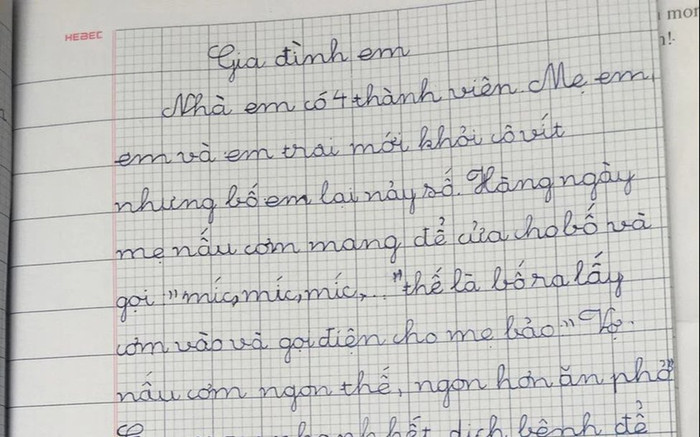 HEBEC
mor
n!
Gia đình em
Nhà em có 4 thành viên. Mẹ em,
em và em trai mới khỏi cô vít
nhưng bố em lại nảy số. Hàng ngày
mẹ nấu cơm mang để cửa cho bố và
gọi "míc, míc, míc,..." thế là bố ra lấy
cơm vào và gọi điện cho mẹ bảo "Vợ
nấu cơm ngon thế, ngon hơn ăn phở"
hết dịch bệnh để